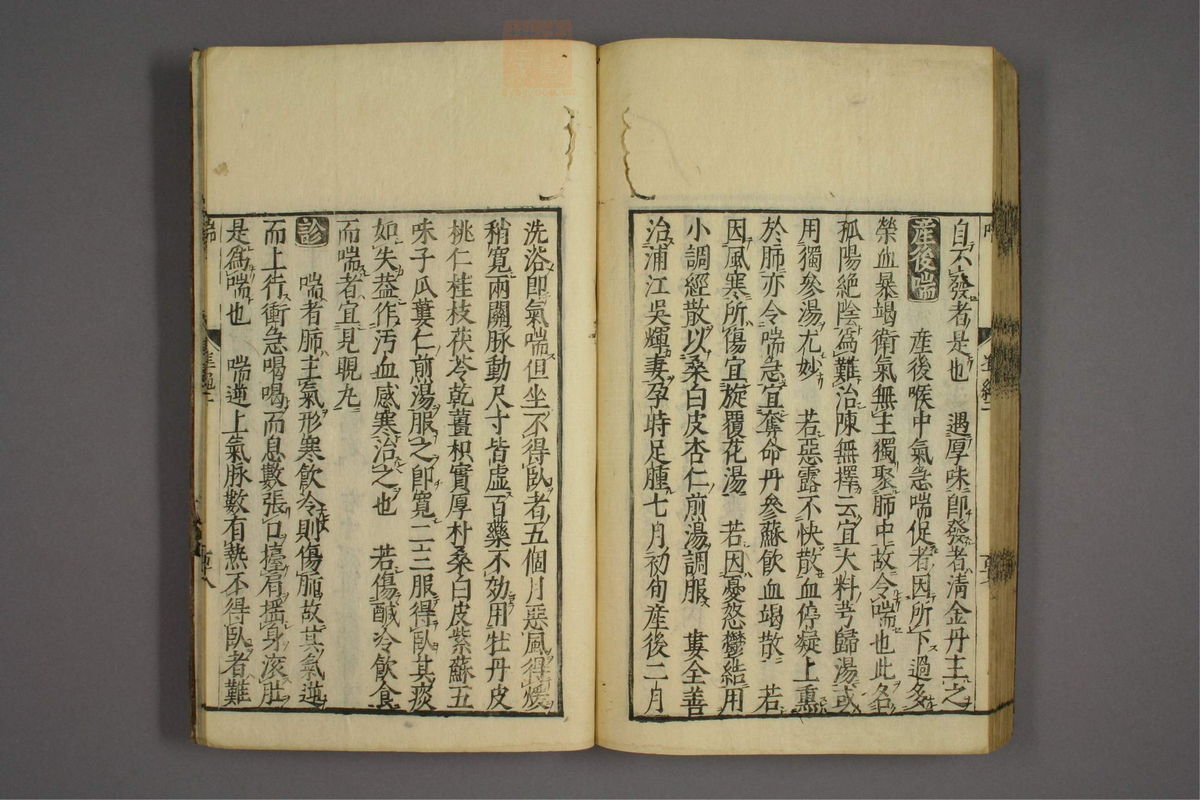 自不發者是也　遇厚味即發者清金丹主之
産後喘　産後喉中氣急喘促者因所下過多
榮血暴竭衛氣無主獨聚肺中故令喘也此名
孤陽絶陰爲難治陳無擇云宜大料芎歸湯或
用獨參湯尤妙　若惡露不快散血停凝上熏
於肺亦令喘急宜奪命丹參蘇飲血竭散　若
因風寒所傷宜旋覆花湯　若因憂愁鬱結用
小調經散以桑白皮杏仁煎湯調服　婁全善
治浦江吳輝妻孕時足腫七月初旬產後二月
洗浴即氣喘但坐不得臥者五個月惡風得煖
稍寛兩關脉動尺寸皆虚百藥不効用牡丹皮
桃仁桂枝茯苓乾薑枳實厚朴桑白皮紫蘇五
味子瓜蔞仁煎湯服之即寛二三服得臥其痰
如失葢作汚血感寒治之也　若傷鹹冷飲食
而喘者宜見晛丸
診　喘者肺主氣形寒飲冷則傷肺故其氣逆
而上行衝急喝喝而息數張口擡肩搖身滚肚
是爲喘也　喘逆上氣脉數有熱不得臥者難